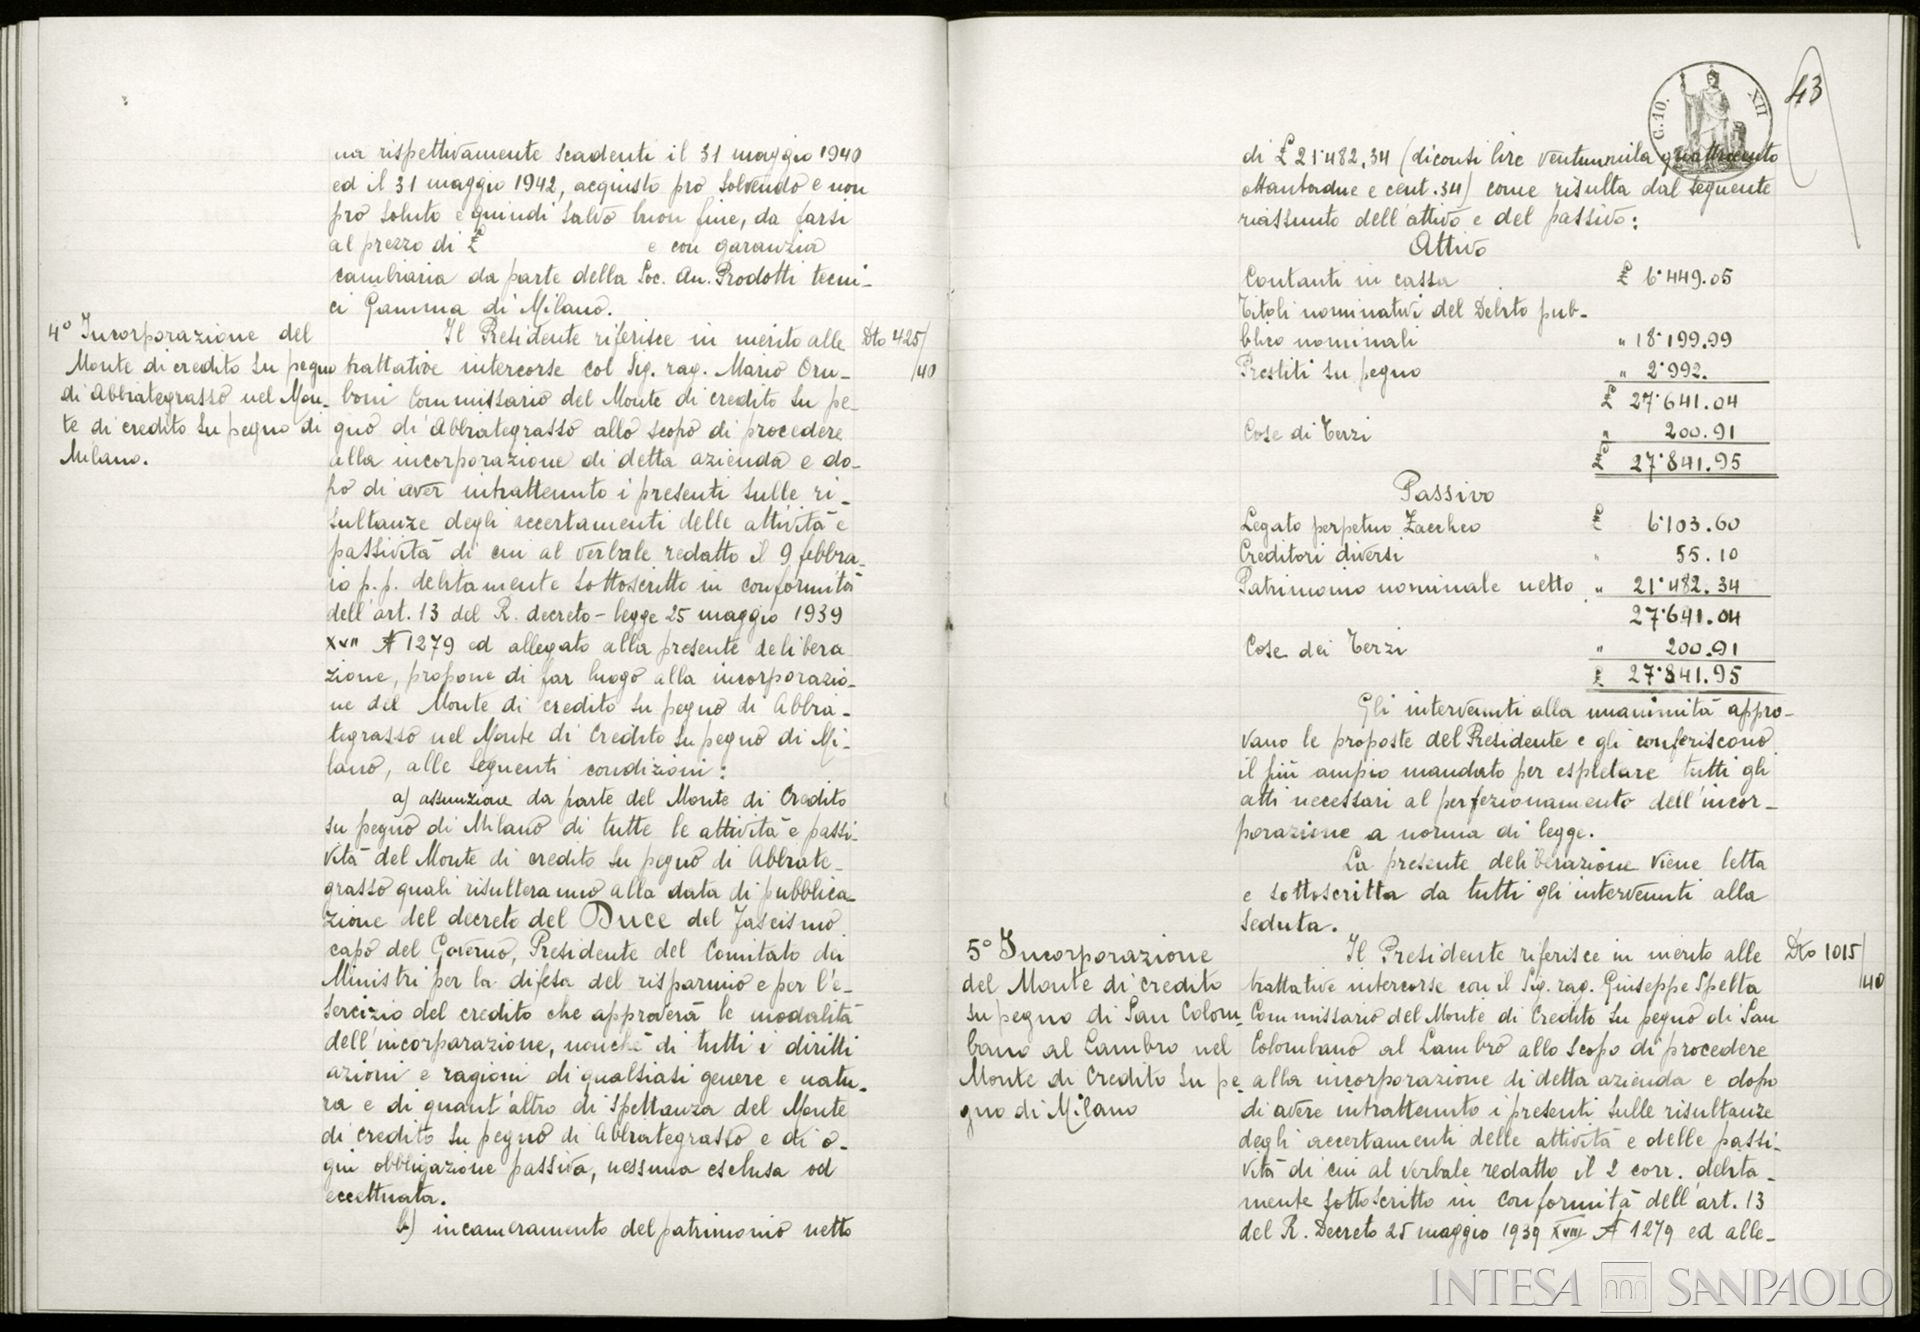 na rispettivamente scadenti il 31 maggio 1940
ed il 31 maggio 1942, acquisto pro solvendo e non
pro soluto e quindi salvo buon fine, da farsi
al prezzo di £ e con garanzia
cambiaria da parte della Soc. An. Prodotti tecni-
ci Gamma di Milano.
4° Incorporazione del
Monte di credito su pegno
di Abbiategrasso nel Mon-
te di credito su pegno di
Milano.
Il Presidente riferisce in merito alle
trattative intercorse col Sig. rag. Mario Oru-
boni Commissario del Monte di credito su pe-
gno di Abbiategrasso allo scopo di procedere
alla incorporazione di detta azienda e do-
po di aver intrattenuto i presenti sulle ri-
sultanze degli accertamenti delle attività e
passività di cui al verbale redatto il 9 febbra-
io p.p. debitamente sottoscritto in conformità
dell'art. 13 del R. decreto-legge 25 maggio 1939
XVII N 1279 ed allegato alla presente delibera
zione, propone di far luogo alla incorporazio-
ne del Monte di credito su pegno di Abbia-
tegrasso nel Monte di Credito su pegno di Mi-
lano, alle seguenti condizioni:
a) assunzione da parte del Monte di Credito
su pegno di Milano di tutte le attività e passi-
vità del Monte di credito su pegno di Abbiate-
grasso quali risulteranno alla data di pubblica
zione del decreto del Duce del Fascismo
capo del Governo, Presidente del Comitato dei
Ministri per la difesa del risparmio e per l'e-
sercizio del credito che approverà le modalità
dell'incorporazione, nonché di tutti i diritti
azioni e ragioni di qualsiasi genere e natu-
ra e di quant'altro di spettanza del Monte
di credito su pegno di Abbiategrasso e di o-
gni obbligazione passiva, nessuna esclusa od
eccettuata.
b) incameramento del patrimonio netto
Dto 425/
/40
43
C. 10.
XII
di £ 21'482,34 (diconsi lire ventunmila quattrocento
ottantadue e cent. 34) come risulta dal seguente
riassunto dell'attivo e del passivo:
Attivo
Contanti in cassa £ 6'449.05
Titoli nominativi del Debito pub-
blico nominali " 18'199.99
Prestiti su pegno " 2'992.
£ 27'641.04
Cose di Terzi " 200.91
£ 27'841.95
Passivo
Legato perpetuo Zaccheo £ 6'103.60
Creditori diversi " 55.10
Patrimonio nominale netto " 21'482.34
27'641.04
Cose dei Terzi " 200.91
£ 27'841.95
Gli intervenuti alla unanimità appro-
vano le proposte del Presidente e gli conferiscono
il più ampio mandato per espletare tutti gli
atti necessari al perfezionamento dell'incor-
porazione a norma di legge.
La presente deliberazione viene letta
e sottoscritta da tutti gli intervenuti alla
seduta.
5° Incorporazione
del Monte di credito
su pegno di San Colom-
bano al Lambro nel
Monte di Credito su pe-
gno di Milano
Il Presidente riferisce in merito alle
trattative intercorse con il Sig. rag. Giuseppe Spelta
Commissario del Monte di Credito su pegno di San
Colombano al Lambro allo scopo di procedere
alla incorporazione di detta azienda e dopo
di avere intrattenuto i presenti sulle risultanze
degli accertamenti delle attività e delle passi-
vità di cui al verbale redatto il 2 corr. debita-
mente sottoscritto in conformità dell'art. 13
del R. Decreto 25 maggio 1939 XVII N 1279 ed alle-
Dto 1015/
/40
INTESA SANPAOLO